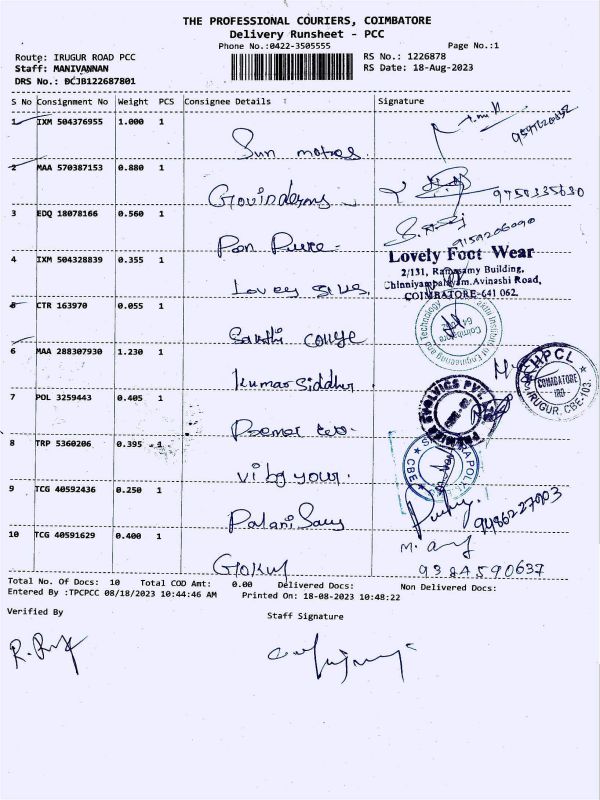 THE PROFESSIONAL COURIERS, COIMBATORE
Delivery Runsheet - PCC
Phone No.:0422-3505555 Page No.:1
Route: IRUGUR ROAD PCC RS No.: 1226878
Staff: MANIVANNAN RS Date: 18-Aug-2023
DRS No.: DCJB122687801
S No Consignment No Weight PCS Consignee Details Signature
1 IXM 504376955 1.000 1
Sun motors
2 MAA 570387153 0.880 1
9750335630
3 EDQ 18078166 0.560 1
Pon Pure
9159206090
4 IXM 504328839 0.355 1
Lovely Foot Wear
2/131, Ramasamy Building,
Chinniyampalayam.Avinashi Road,
COIMBATORE-641 062.
5 CTR 163970 0.055 1
Sakthi College
6 MAA 288307930 1.230 1
Kumar Siddhu
HPCL
COIMBATORE
IRUGUR, CBE-103.
7 POL 3259443 0.405 1
PREMIER EVOLVICS PVT. LTD
8 TRP 5360206 0.395 1
vibgyour.
CBE
9 TCG 40592436 0.250 1
Palani Samy
9486227003
10 TCG 40591629 0.400 1
Gokul
9384590637
Total No. Of Docs: 10 Total COD Amt: 0.00 Delivered Docs: Non Delivered Docs:
Entered By :TPCPCC 08/18/2023 10:44:46 AM Printed On: 18-08-2023 10:48:22
Verified By Staff Signature